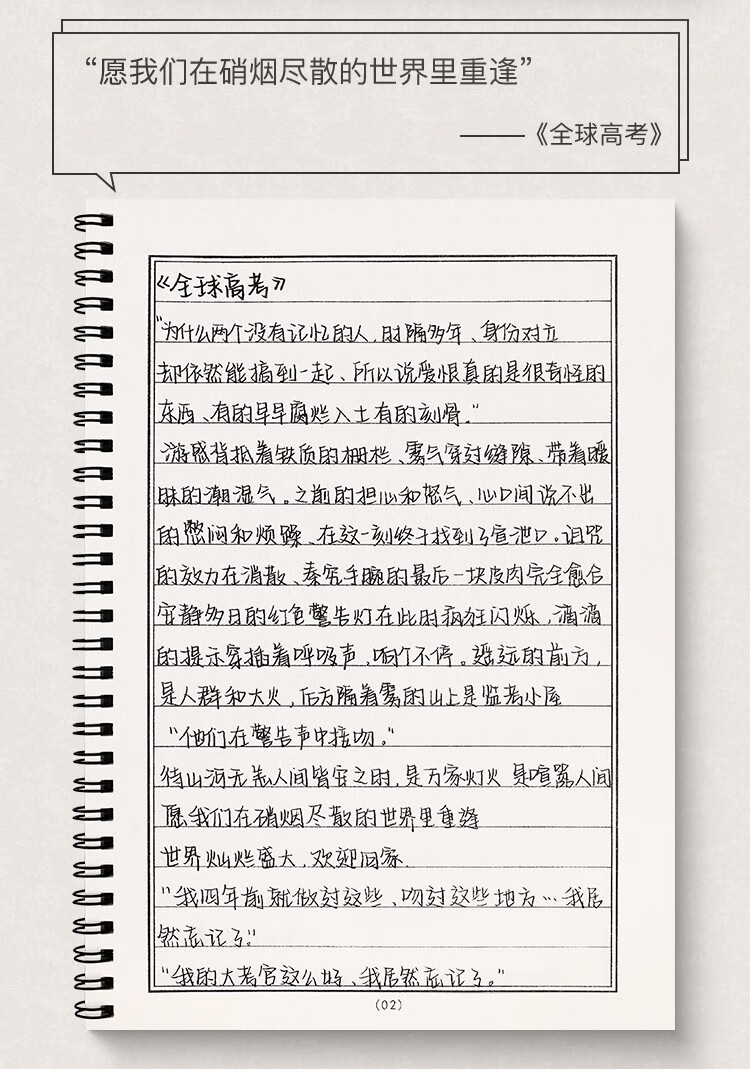 “愿我们在硝烟尽散的世界里重逢”
——《全球高考》
《全球高考》
“为什么两个没有记忆的人,时隔多年、身份对立
却依然能搞到一起、所以说爱恨真的是很奇怪的
东西、有的早早腐烂入土有的刻骨.”
游惑背抵着铁质的栅栏、雾气穿过缝隙、带着暧
昧的潮湿气。之前的担心和怒气、心口间说不出
的憋闷和烦躁、在这一刻终于找到了宣泄口。诅咒
的效力在消散、秦究手腕的最后一块皮肉完全愈合
安静多日的红色警告灯在此时疯狂闪烁,滴滴
的提示穿插着呼吸声,响个不停。遥远的前方,
是人群和大火,后方隔着雾的山上是监考小屋
“他们在警告声中接吻。”
待山河无恙人间皆安之时,是万家灯火 是喧嚣人间
愿我们在硝烟尽散的世界里重逢
世界灿烂盛大,欢迎回家.
“我四年前就做过这些、吻过这些地方…我居
然忘记了.”
“我的大考官这么好、我居然忘记了。”
(02)